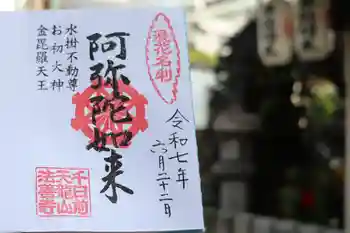 浪花名刹
水掛不動尊
お初大神
金毘羅天王
阿弥陀如来
令和七年
六月二十二日
千日前
天龍山
法善寺